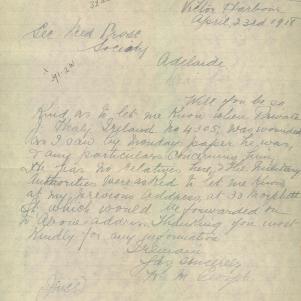 Victor Harbour
April 23rd 1918
Sec Red Cross
Society
Adelaide
Will you be so
Kind as to let me Know when Private
J. Ireland No 4305, was wounded
as I saw by Mondays paper he was,
& any particulars concerning him,
He has no relatives here, & the military
authorities were asked to let me Know
at my previous address, at 30
St which would be forwarded on
to above address. Thanking you most
Kindly for any information
I remain
Yrs Sincerely
M